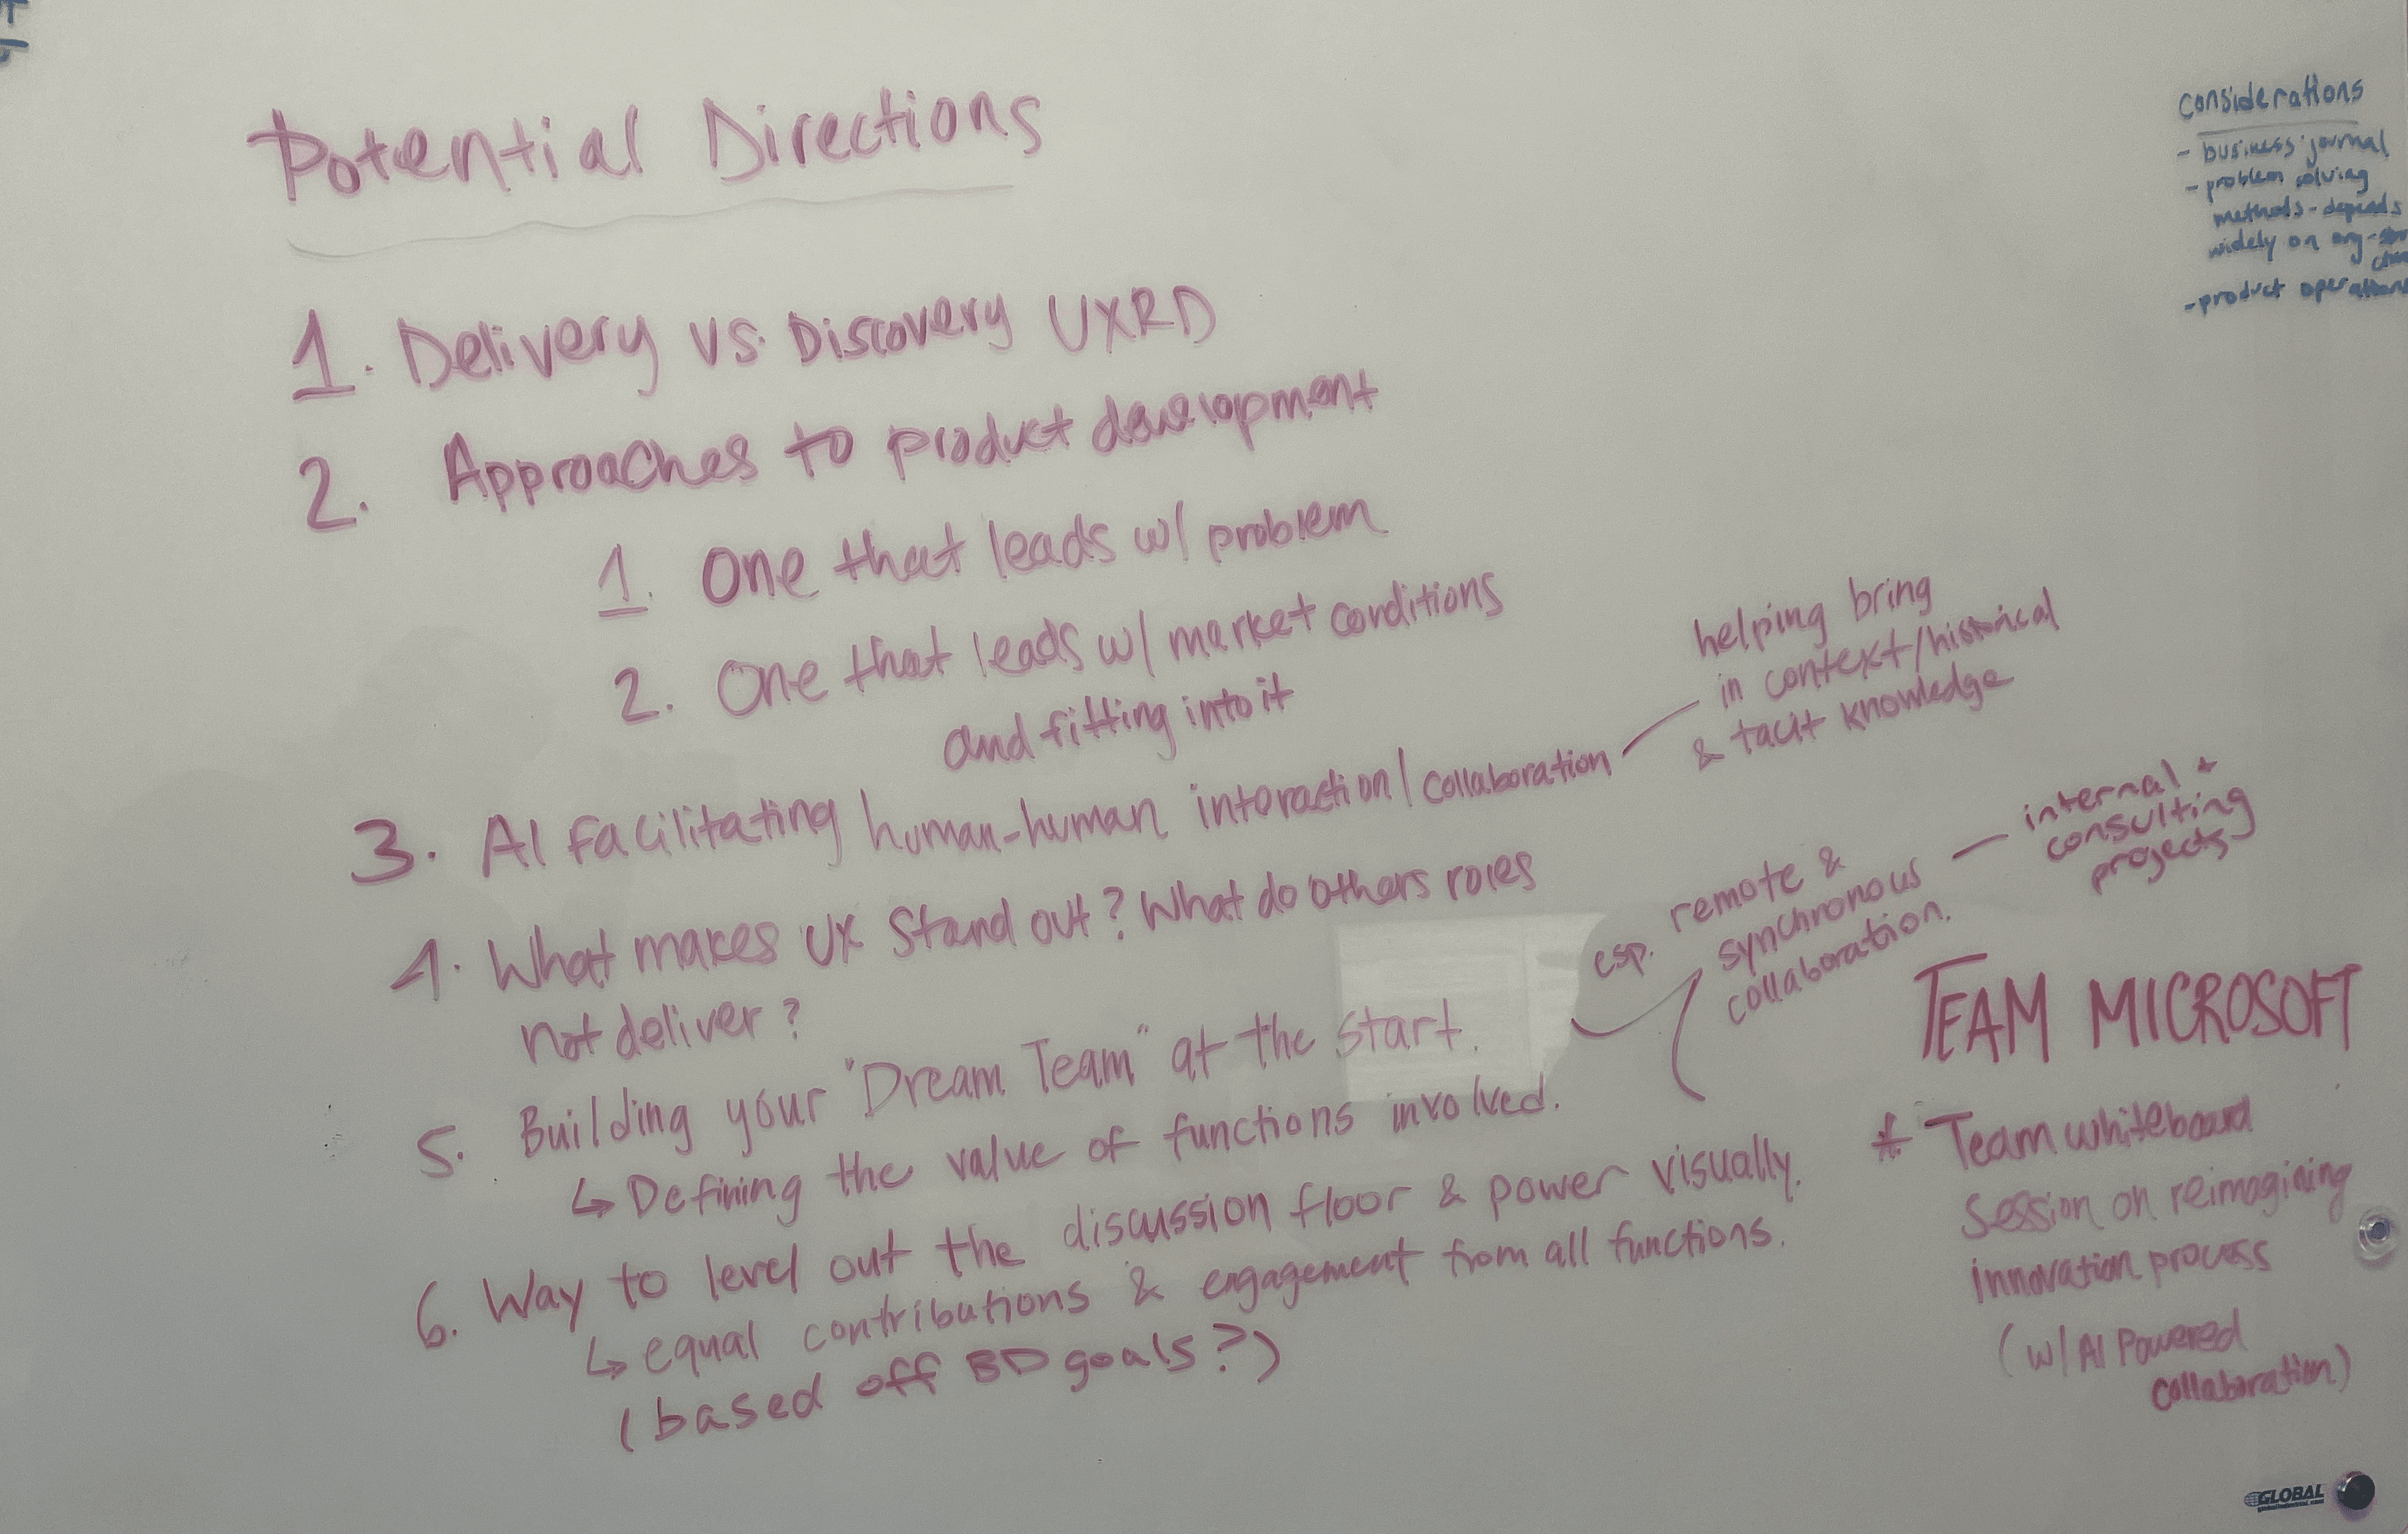 Potential Directions
1. Delivery vs. Discovery UXRD
2. Approaches to product development
1. One that leads w/ problem
2. One that leads w/ market conditions
and fitting into it
3. AI facilitating human-human interaction/collaboration
helping bring
in context/historical
& tacit knowledge
4. What makes UX stand out? What do others roles
not deliver?
5. Building your "Dream Team" at the start.
↳ Defining the value of functions involved.
esp. remote &
synchronous
collaboration.
internal +
consulting
projects
6. Way to level out the discussion floor & power visually.
↳ equal contributions & engagement from all functions.
(based off BD goals?)
considerations
- business journal
- problem solving
methods - depends
widely on org-
- product operations
TEAM MICROSOFT
* Team whiteboard
session on reimagining
innovation process
(w/ AI Powered
collaboration)
GLOBAL